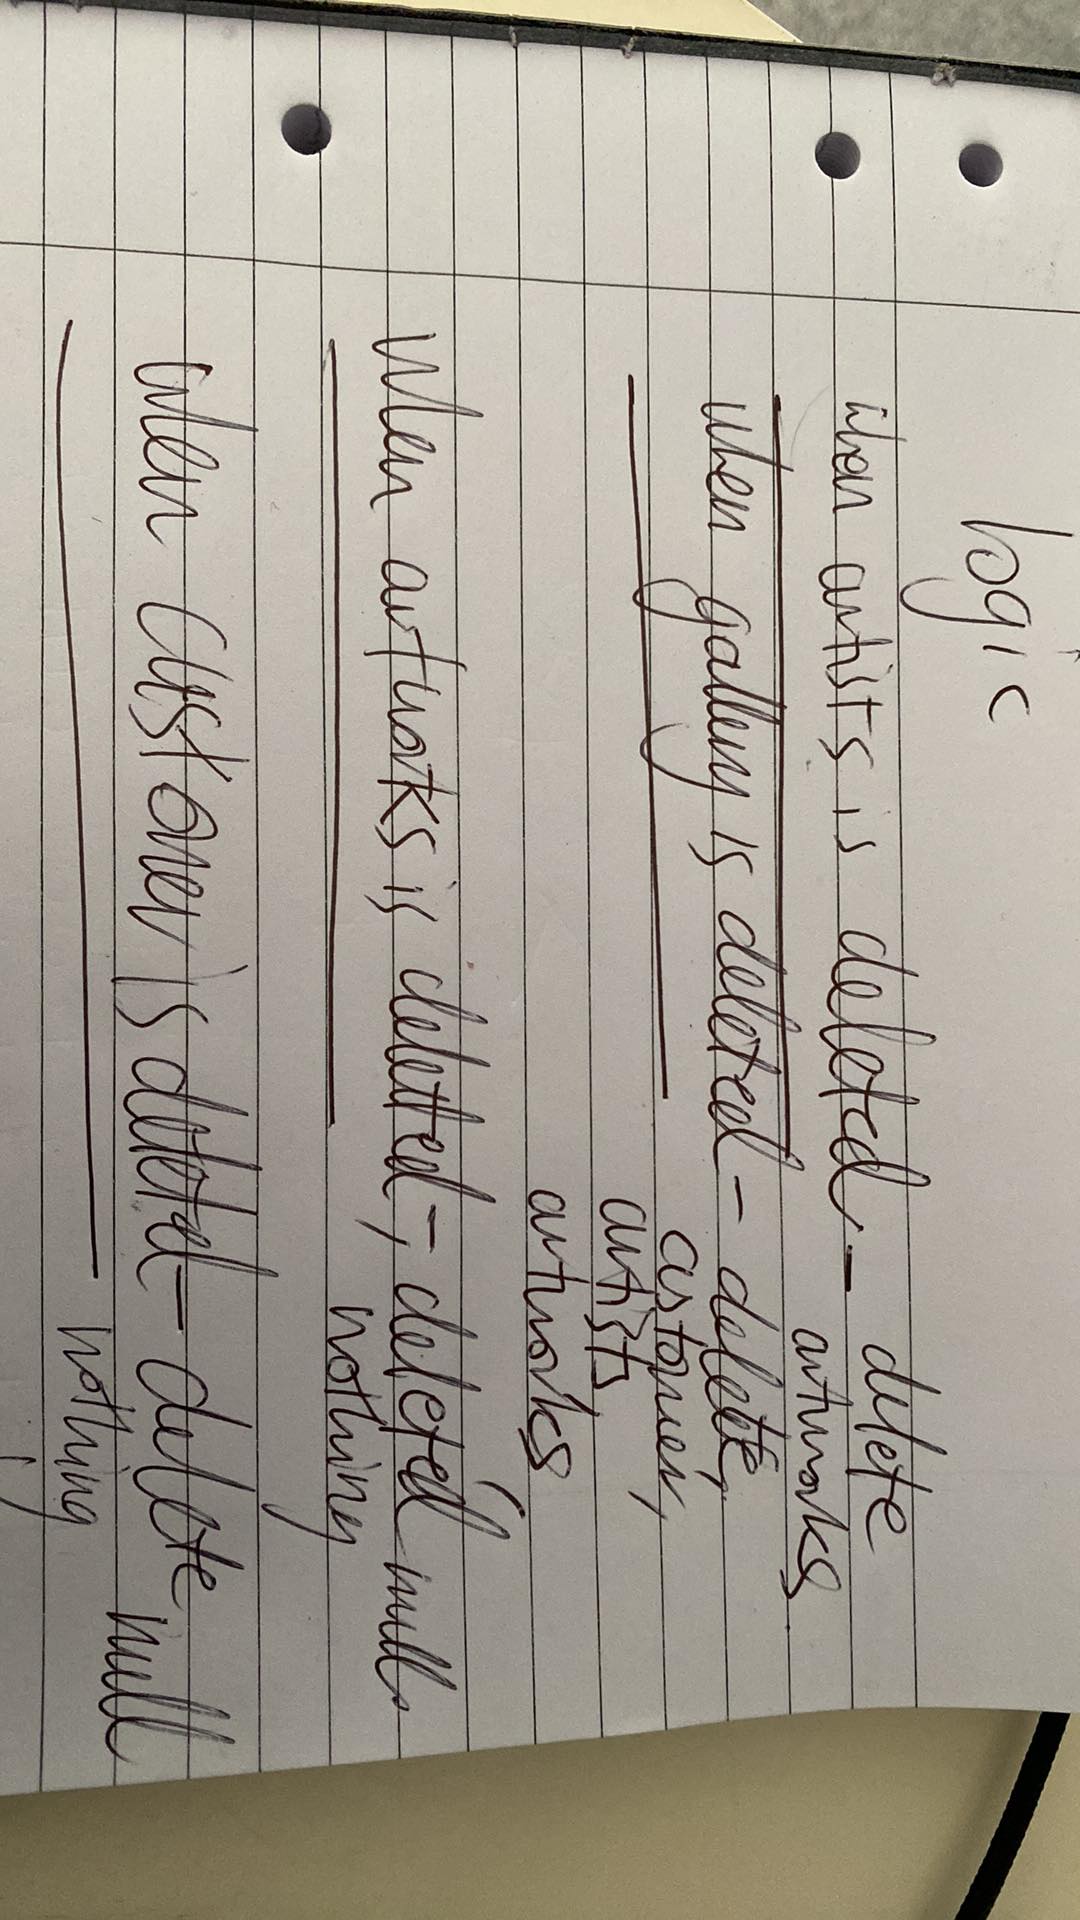 logic
when artists is deleted - delete
artworks
when gallery is deleted - delete,
customer,
artists,
artworks,
when artworks is deleted -, deleted null.
nothing
when customer is deleted - delete null
nothing